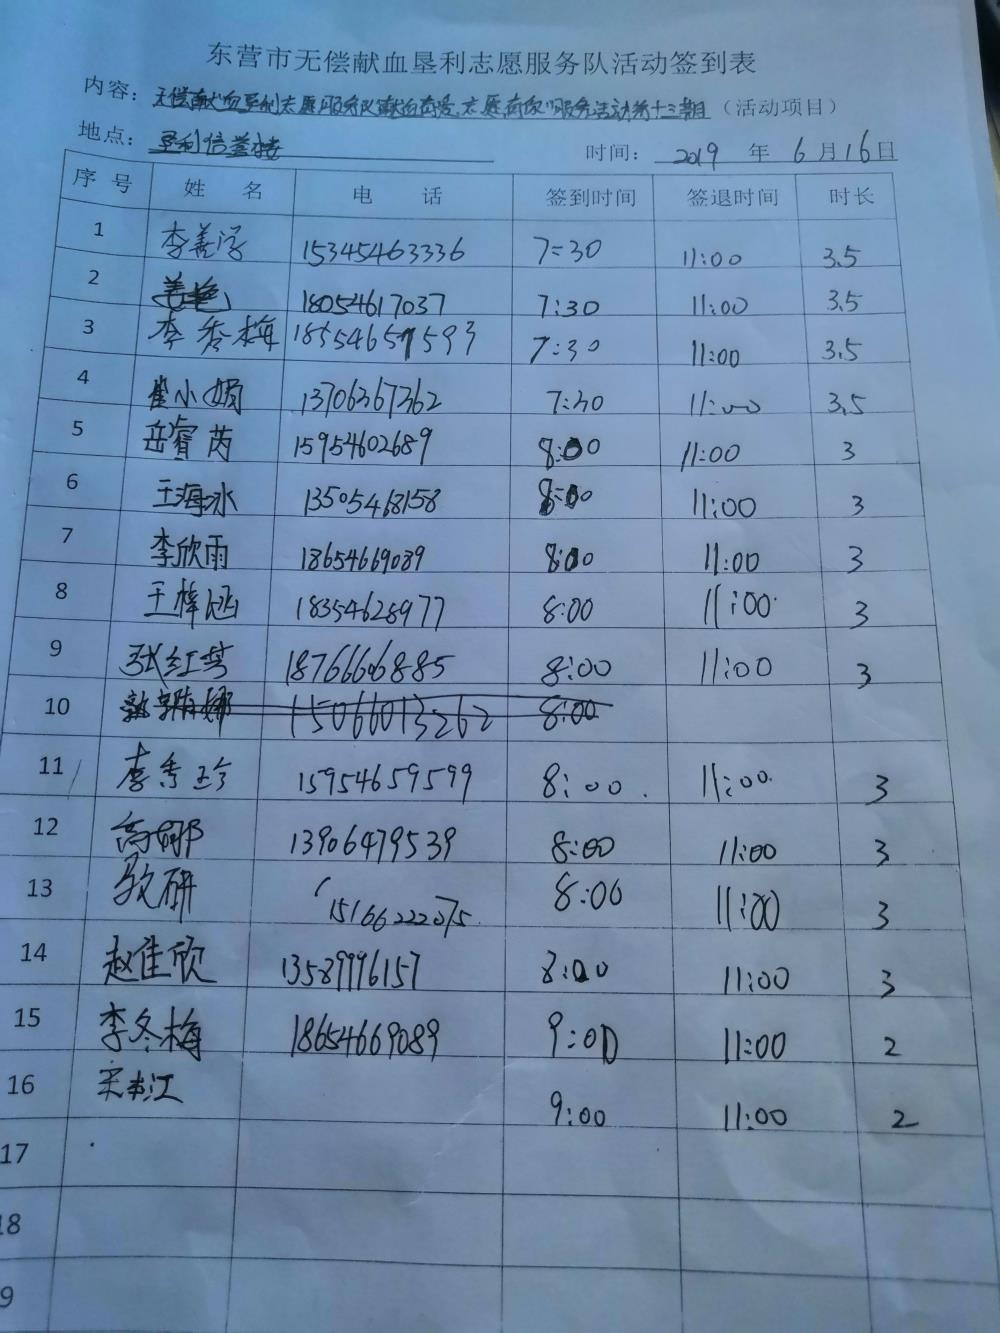 东营市无偿献血垦利志愿服务队活动签到表
内容：无偿献血垦利志愿服务队献血 志愿 服务活动第十三期（活动项目）
地点：垦利信誉楼 时间：2019 年 6 月 16 日
序号 姓 名 电 话 签到时间 签退时间 时长
1 李善学 15345463336 7:30 11:00 3.5
2 姜艳 18054617037 7:30 11:00 3.5
3 李秀梅 7:30 11:00 3.5
4 崔小娟 13706367262 7:30 11:00 3.5
5 岳睿芮 15954602689 8:00 11:00 3
6 王海冰 13505468158 8:00 11:00 3
7 李欣雨 18654669089 8:00 11:00 3
8 王梓涵 18354628977 8:00 11:00 3
9 张红梦 18766606885 8:00 11:00 3
10 15066013262 8:00
11 李秀玲 15954659599 8:00 11:00 3
12 高娜 13906479539 8:00 11:00 3
13 敦研 15166222075 8:00 11:00 3
14 赵佳欣 13589996157 8:00 11:00 3
15 李冬梅 18654669089 9:00 11:00 2
16 宋本江 9:00 11:00 2
17
18
9